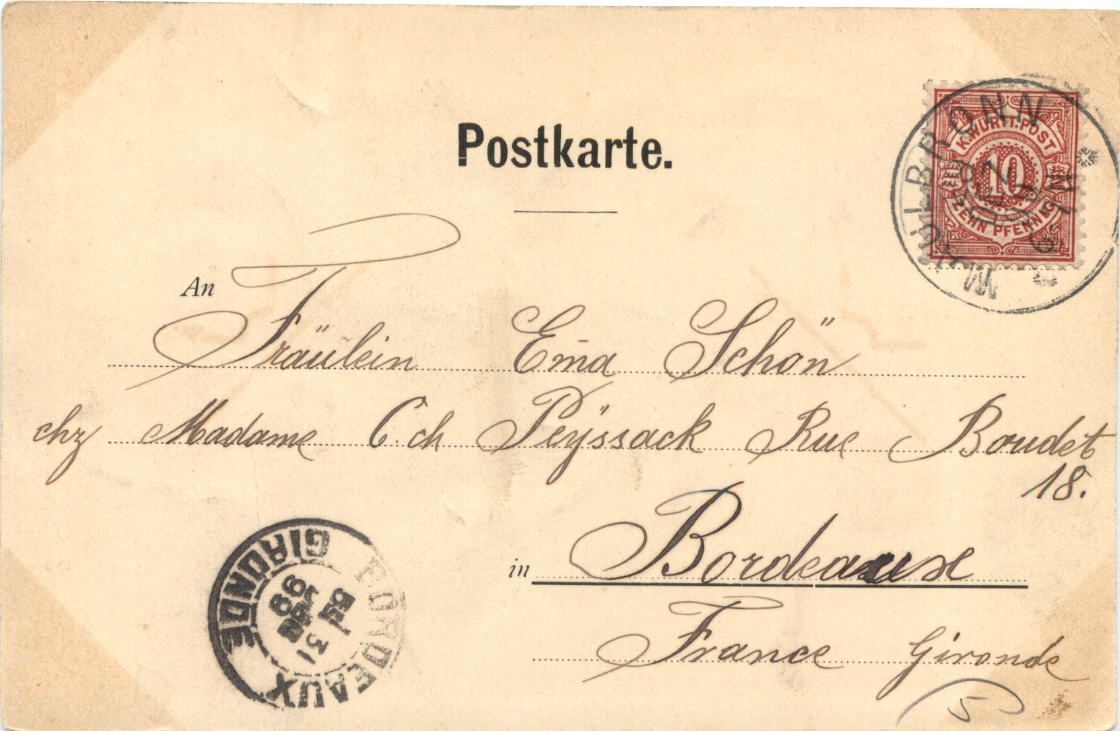 Postkarte.
K. WÜRTT. POST
10
ZEHN PFENNIG
MAULBRONN
An Fräulein Em̄a Schön
chz Madame Cch Peÿssack Rue Boudet
18.
in Bordeaux
France Gironde
5
BORDEAUX
GIRONDE
31
98